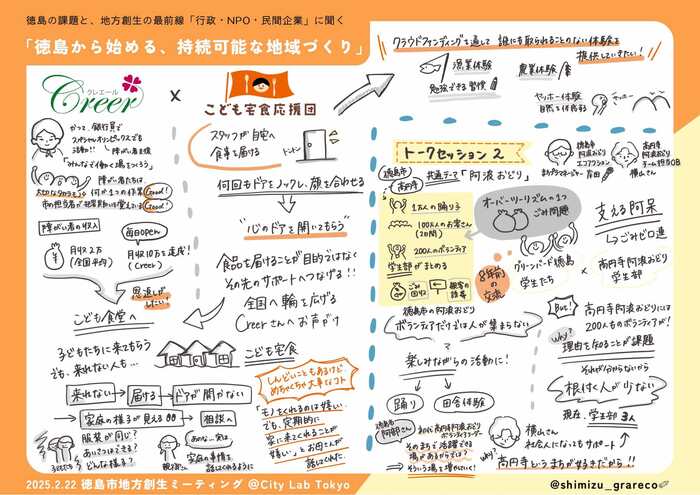 徳島の課題と、地方創生の最前線「行政・NPO・民間企業」に聞く
「徳島から始める、持続可能な地域づくり」
クレエール
Creer
×
こども宅食応援団
かつて、銀行員で
スペシャルオリンピックスでも
活動!!
障がい者主役
「みんなで働く場をつくろう」
障がい者たちは
何か1つの作業
Good!
Good!
障がい者の収入
毎日open
月収2万
(全国平均)
月収10万を達成!
(Creer)
恩返しが
したい!
こども食堂へ
子どもたちに来てもらう
でも、来れない人も…
スタッフが自宅へ
食事を届ける
トントン
何回もドアをノックし、顔を合わせる
"心のドアを開いてもらう"
食品を届けることが目的ではなく
その先のサポートへつなげる!!
全国へ輪を広げる
Creerさんへお声がけ
こども宅食
来れない
届ける
ドアが開かない
家庭の様子が見える
相談へ
服装が同じ?
あいさつはできる?
どんな様子?
子どもたち
あのね…実は
家庭の事情を
話してくれるように
しんどいこともあるけど
めちゃくちゃ大事なコト
「モノをくれるのは嬉しい
でも、定期的に
家に来てくれることが
嬉しい」とお母さんが
話してくれた。
クラウドファンディングを通して誰にも取られることのない体験を
提供していきたい!
漁業体験
農業体験
勉強できる習慣
ヤッホー体験
自然を体感
ヤッホー
トークセッション2
徳島市
高円寺
共通テーマ「阿波おどり」
1万人の踊り子
100万人のお客さん
(2日間)
200人のボランティア
学生部がまとめる
ごみ
回収
観客の
誘導
オーバーツーリズムの1つ
ごみ問題
8年前の
交流
徳島市
阿波おどり
エコアクション
高円寺
阿波おどり
チーム担当OB
横山さん
グリーンバード徳島
学生たち
支える阿呆
ごみゼロ連
高円寺阿波おどり
学生部
徳島市の阿波おどり
ボランティアだけでは人が集まらない
why?
楽しみながらの活動に!
踊り
田舎体験
徳島市
阿部さん
高円寺阿波おどり
ボランティアリーダー
そのまちで活躍できる
場があるからでは?
そういう場を増やしていく!
But!
高円寺阿波おどりには
200人ものボランティアが!
why?
理由もなることが課題
それが分からないから
根付く人が少ない
現在、学生部3人
横山さん
社会人になってもサポート
高円寺というまちが好きだから!!
2025.2.22 徳島市地方創生ミーティング @City Lab Tokyo
@shimizu_grareco